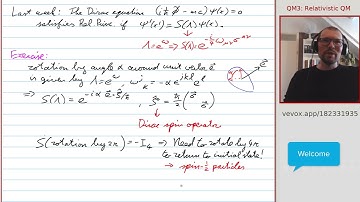 Last week: The Dirac equation (iħ∂̸ - mc)Ψ(x) = 0
satisfies Rel. Princ. if Ψ'(x') = S(Λ)Ψ(x).
Λ = e^ω ⇒ S(Λ) = e^{-i/4 ω_{μν} σ^{μν}}
Exercise:
rotation by angle α around unit vector e⃗
is given by Λ = e^ω, ω^j_k = -α e^i ε^{jkl}
⇒ S(Λ) = e^{-iα e⃗·S⃗/ħ}, S⃗ = ħ/2 (σ⃗ σ⃗)
Dirac spin operator
S(rotation by 2π) = -I₄ → Need to rotate by 4π
to return to initial state!
→ spin-½ particles
QM3: Relativistic QM
vevox.app/182331935
Welcome